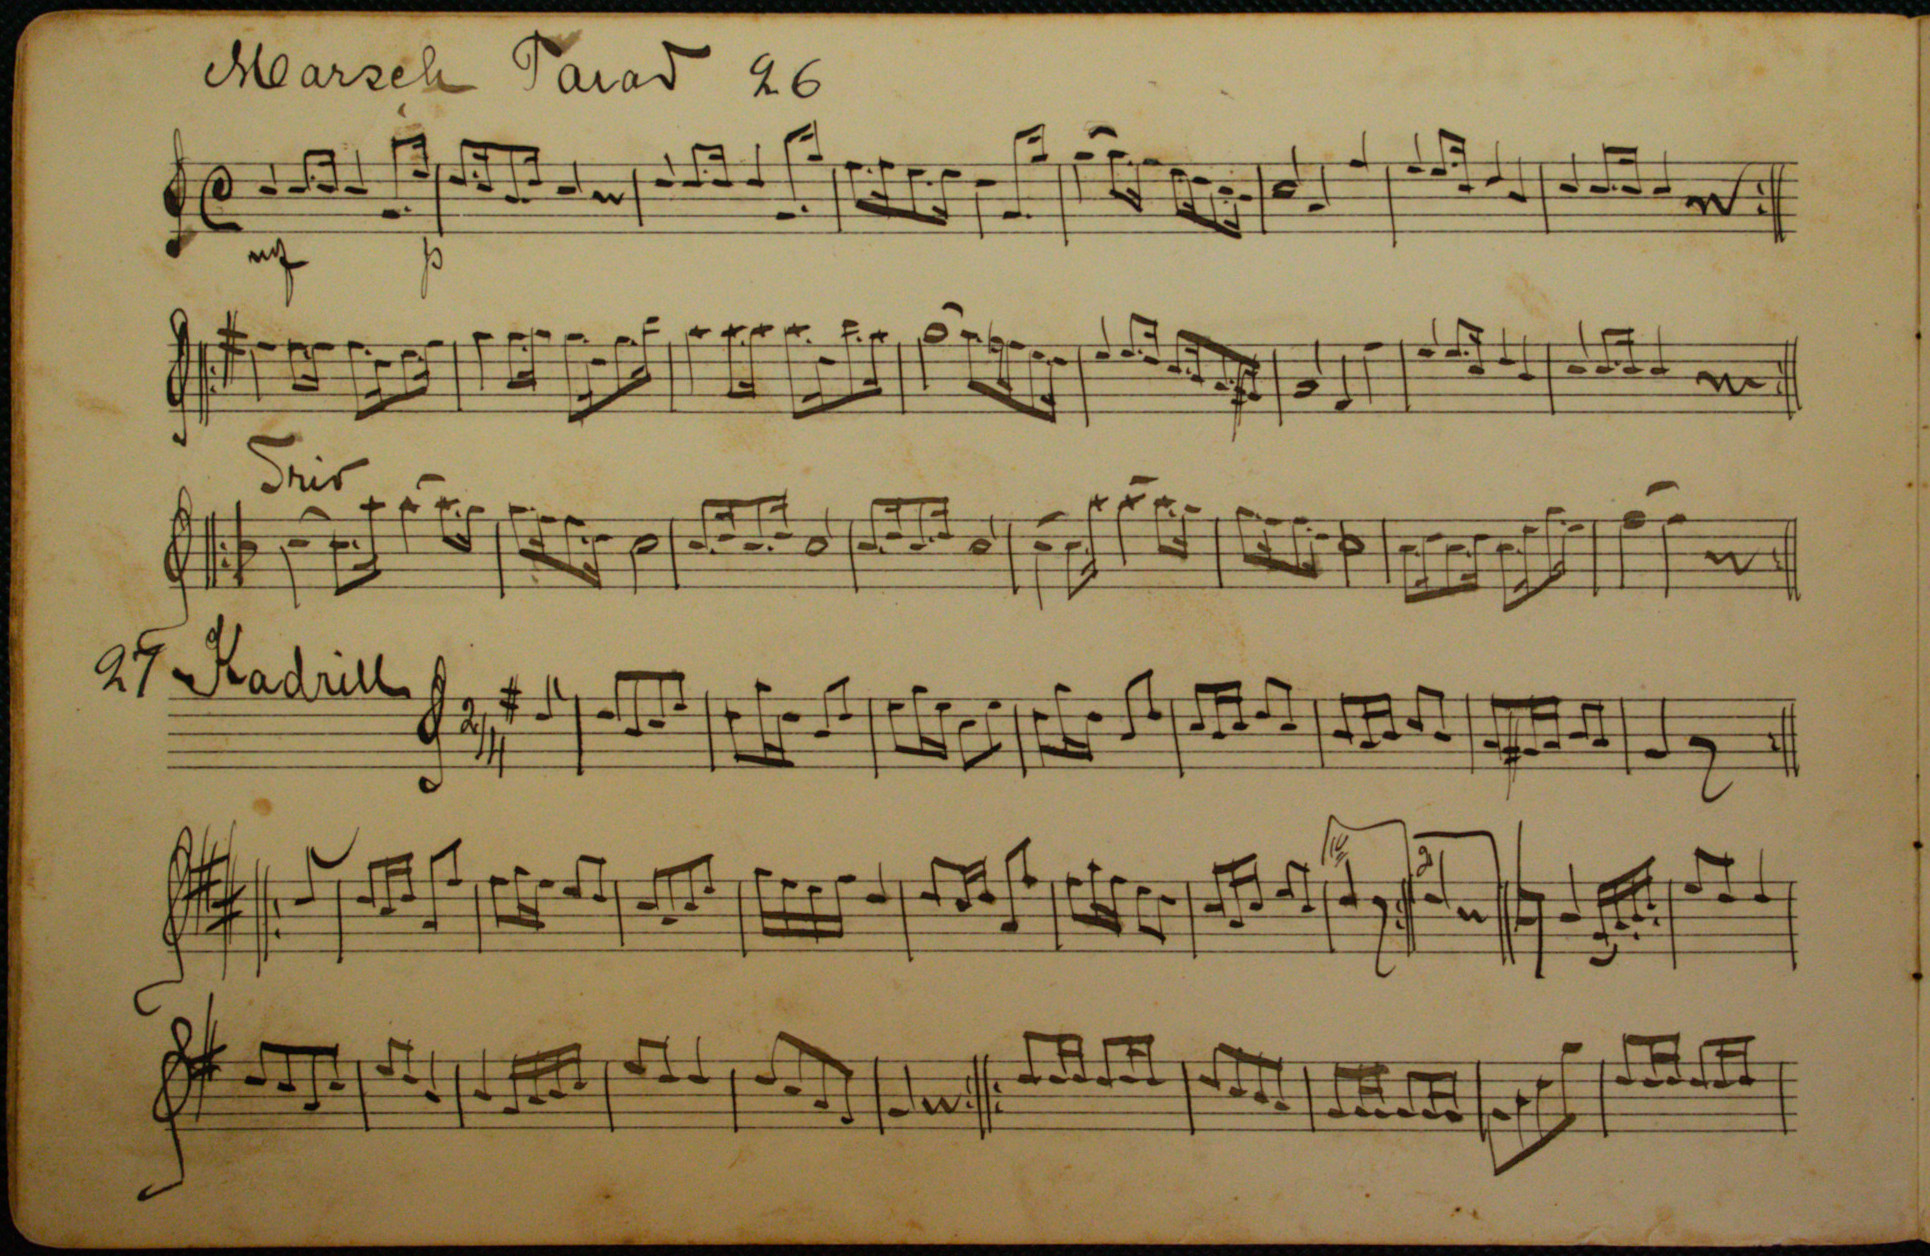 Marsch Parad 26
mf p
Trio
27 Kadrill
2/4
2